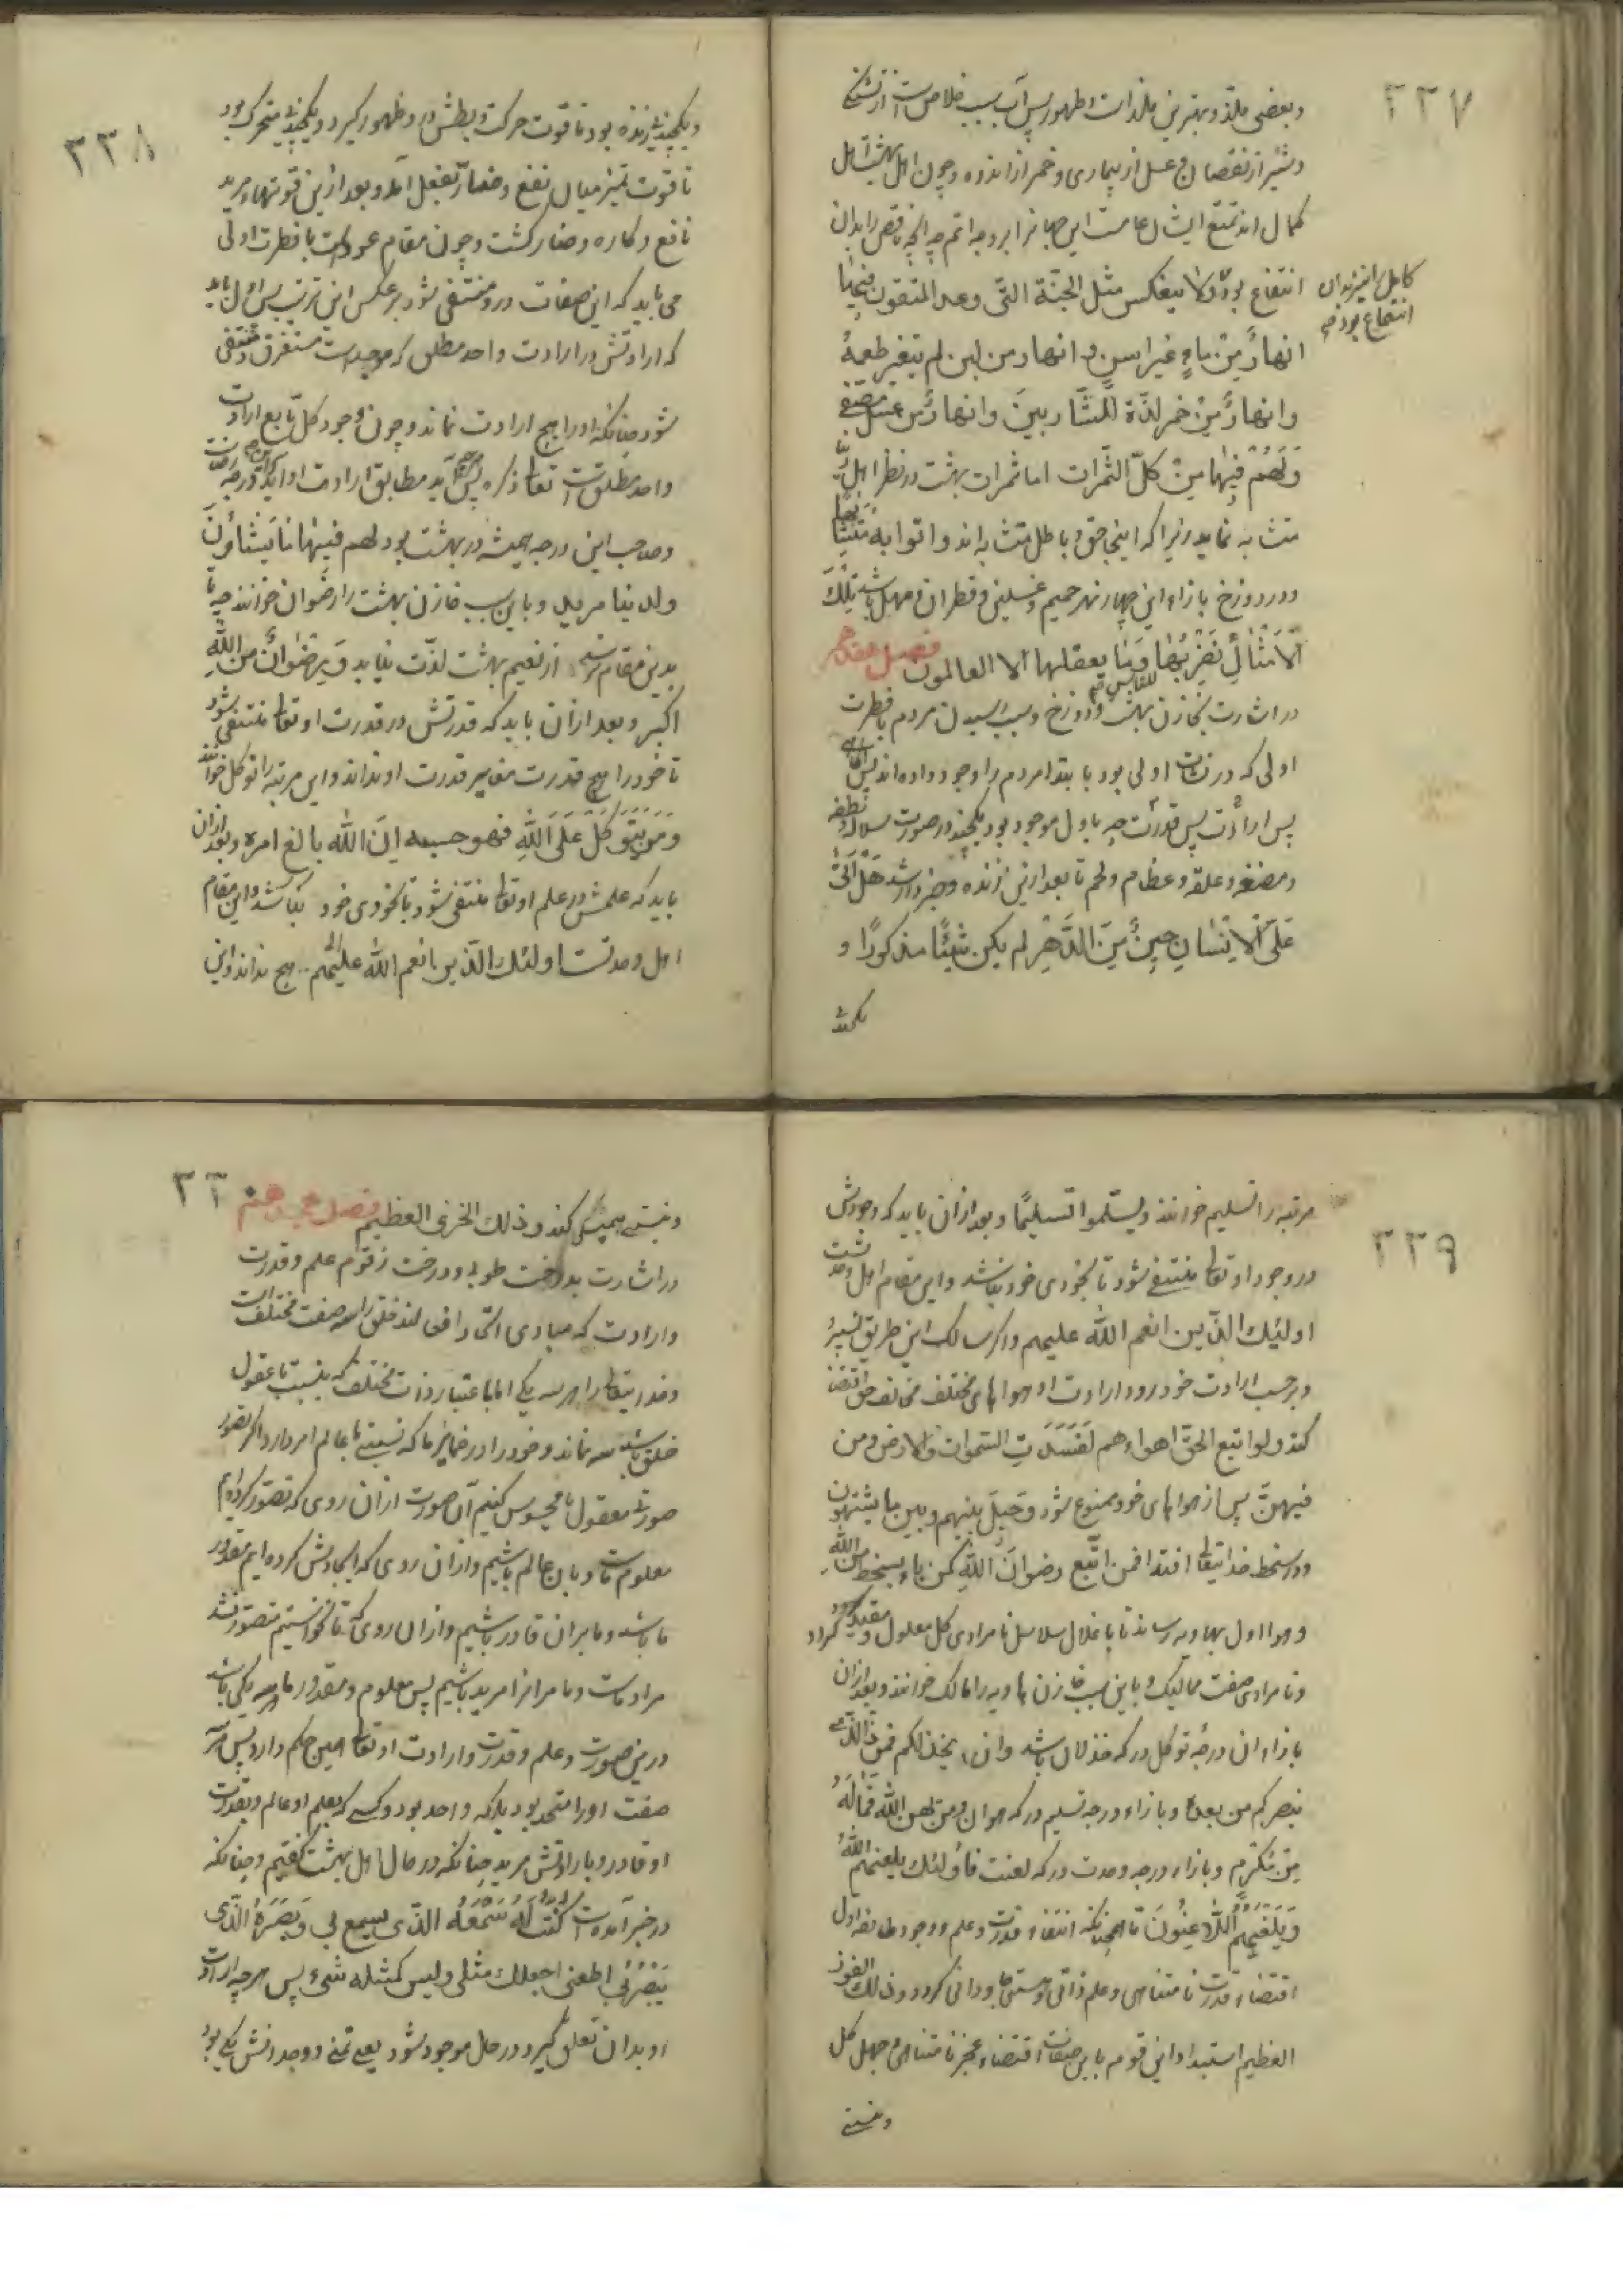 ٣٣٧
و بعضی ملذ و بهترین ملذات و طهور پس آب سبب خلاص است از تشنگی
و شیر از نقصان و عسل از بیماری و خمر از اندوه و چون اهل بهشت اهل
کمال اند تمتع ایشان عام است این چهار را بر وجه اتم چه آنچه ناقص را بدان
انتفاع بود و لا ینعکس مثل الجنّة التی وعد المتقون فیها
کامل را نیز بدان
انتفاع بود
انهارٌ مِنْ ماءٍ غیر اسنٍ و انهار من لبن لم یتغیر طعمهُ
و انهارٌ مِنْ خمر لذّة للشّاربینَ و انهارٌ من عسل مصفّی
وَ لَهُمْ فیها مِنْ کلّ الثّمرات اما ثمرات بهشت در نظر اهل
متشابه نماید زیرا که اینجا حق و باطل متشابه اند و اتوا به متشابها
و در دوزخ بازاء این چهار نهر حمیم و غسلین و قطران و مهل باشد تِلْکَ
الاَمْثالُ نَضْرِبُها للناس وَ ما یعقلها الا العالمون فصل هفدهم
در اشارت بخازن بهشت و دوزخ و سبب رسیدن مردم بافطرت
اولی که در نشأت اولی بود بابتدا مردم را وجود داده اند پس آگاهی
پس ارادت پس قدرت چه باول موجود بود یکچند در صورت سلاله و نطفه
و مضغه و علقه و عظام و لحم تا بعد ازین زنده و خبردار شد هَلْ اَتی
عَلَی الاِنْسانِ حِینٌ مِنَ الدَّهْرِ لم یکن شَیْئًا مذکورًا و
یکچند
٣٣٨
و یکچند زنده بود تا قوت حرکت و بطش در او ظهور گیرد و یکچند متحرک بود
تا قوت تمیز میان نفع و ضار بفعل آمد و بعد ازین قوتها مرید
نافع و کاره و ضار گشت و چون مقام عود است بافطرت اولی
می باید که این صفات در و منتفی شود بر عکس این ترتیب پس اول باید
که ارادتش در ارادت واحد مطلق که موجد است مستغرق و منتفی
شود چنانکه او را هیچ ارادت نماند و چون وجود کل تابع ارادت
واحد مطلق است تعالی ذکره پس هر چه آید مطابق ارادت او آید و این درجه رضاست
و صاحب این درجه همیشه در بهشت بود لهم فیها ما یَشاؤنَ
و لدینا مزید و باین سبب خازن بهشت را رضوان خوانند چه تا
بدین مقام نرسد از نعیم بهشت لذّت نیابد وَ رِضْوانٌ مِنَ اللّٰهِ
اکبر و بعد ازان باید که قدرتش در قدرت او تعالی منتفی شود
تا خود را هیچ قدرت مغایر قدرت او نداند و این مرتبه را توکل خوانند
وَ مَنْ یَتَوَکَّلْ عَلَی اللّٰهِ فهو حسبه اِنَّ اللّٰه بالغ امره و بعد ازان
باید که علمش در علم او تعالی منتفی شود تا بخودی خود
اهل وحدتست اولئک الذین انعم اللّٰه علیهم هیچ نداند و این
٣٣٩
مرتبه را تسلیم خوانند و یسلّموا تسلیمًا و بعد ازان باید که وجودش
در وجود او تعالی منتفی شود تا بخودی خود نباشد و این مقام اهل وحدتست
اولئک الّذین انعم اللّٰه علیهم و اگر سالک این طریق نسپرد
و بر حسب ارادت خود رود ارادت او هواهای مختلف مخالف حق اقتضا
کند و لو اتبع الحقّ اهواءهم لَفَسَدَتِ السّموات و الارض و من
فیهنّ پس از هواهای خود ممنوع شود وَ حِیلَ بینهم و بین ما یشتهون
و در سخط خدایتعالی افتد افمن اتّبع رضوانَ اللّٰهِ کمن باء بسخط مِنَ اللّٰهِ
و هوا اول بهاویه رساند تا باغلال سلاسل نامرادی کل مغلول و مقید گردد
و نامرادی صفت ممالیک و باین سبب خازن هاویه را مالک خوانند و بعد ازان
بازاء ان درجه توکل درکه خذلان باشد و ان یخذلکم فمن ذا الّذی
ینصرکم من بعده و بازاء درجه تسلیم درکه هوان و من یهن اللّٰه فَما لَهُ
مِنْ مُکْرِمٍ و بازاء درجه وحدت درکه لعنت فاولئک یلعنهم اللّٰهُ
وَ یَلْعَنُهُمُ اللّاعِنُونَ تا همچنانکه انتفاء قدرت و علم و وجود طایفه اول
اقتضاء قدرت نامتناهی و علم ذاتی و هستی جاودانی کرد و ذلک الفوز
العظیم استبداد این قوم باین صفات اقتضاء عجز نامتناهی و جهل کل
و نیستی
٣٤٠
و نیستی همیشگی کند و ذلک الخزی العظیم فصل هجدهم
در اشارت بدرخت طوبی و درخت زقوم علم و قدرت
و ارادت که مبادی اتحاد افعالند خلق را سه صفت مختلف است
و خدایتعالی را هر سه یکی اما باعتبار ذات مختلف که بنسبت با عقول
خلق باشد سه نماند و خود را در ضمایر ما که نسبتی با عالم امر دارد اگر تصور
صورتی معقول یا محسوس کنیم آن صورت ازان روی که تصوّر کرده‌ایم
معلوم ماست و ما بان عالم باشیم و ازان روی که ایجادش کرده‌ایم مقدور
ما باشد و ما بران قادر باشیم و ازان روی که تا نخواستیم متصوّر نشد
مراد ماست و ما مرانرا مرید باشیم پس معلوم و مقدور ما هر سه یکی باشد
درین صورت و علم و قدرت و ارادت او تعالی همین حکم دارد پس هر سه
صفت او را متحد بود بلکه واحد بود و کسی که بعلم او عالم و بقدرت
او قادر و بارادتش مرید چنانکه در حال اهل بهشت گفتیم و چنانکه
در خبر آمده است کُنْتُ لَهُ سَمْعَهُ الّذی یسمع بی و بَصَرَهُ الّذی
یَبْصُرُ بی اطعنی اجعلک مثلی و لیس کمثله شیء پس هر چه ارادت
او بدان تعلق گیرد در حال موجود شود یعنی تمنی و وجدانش یکی بود